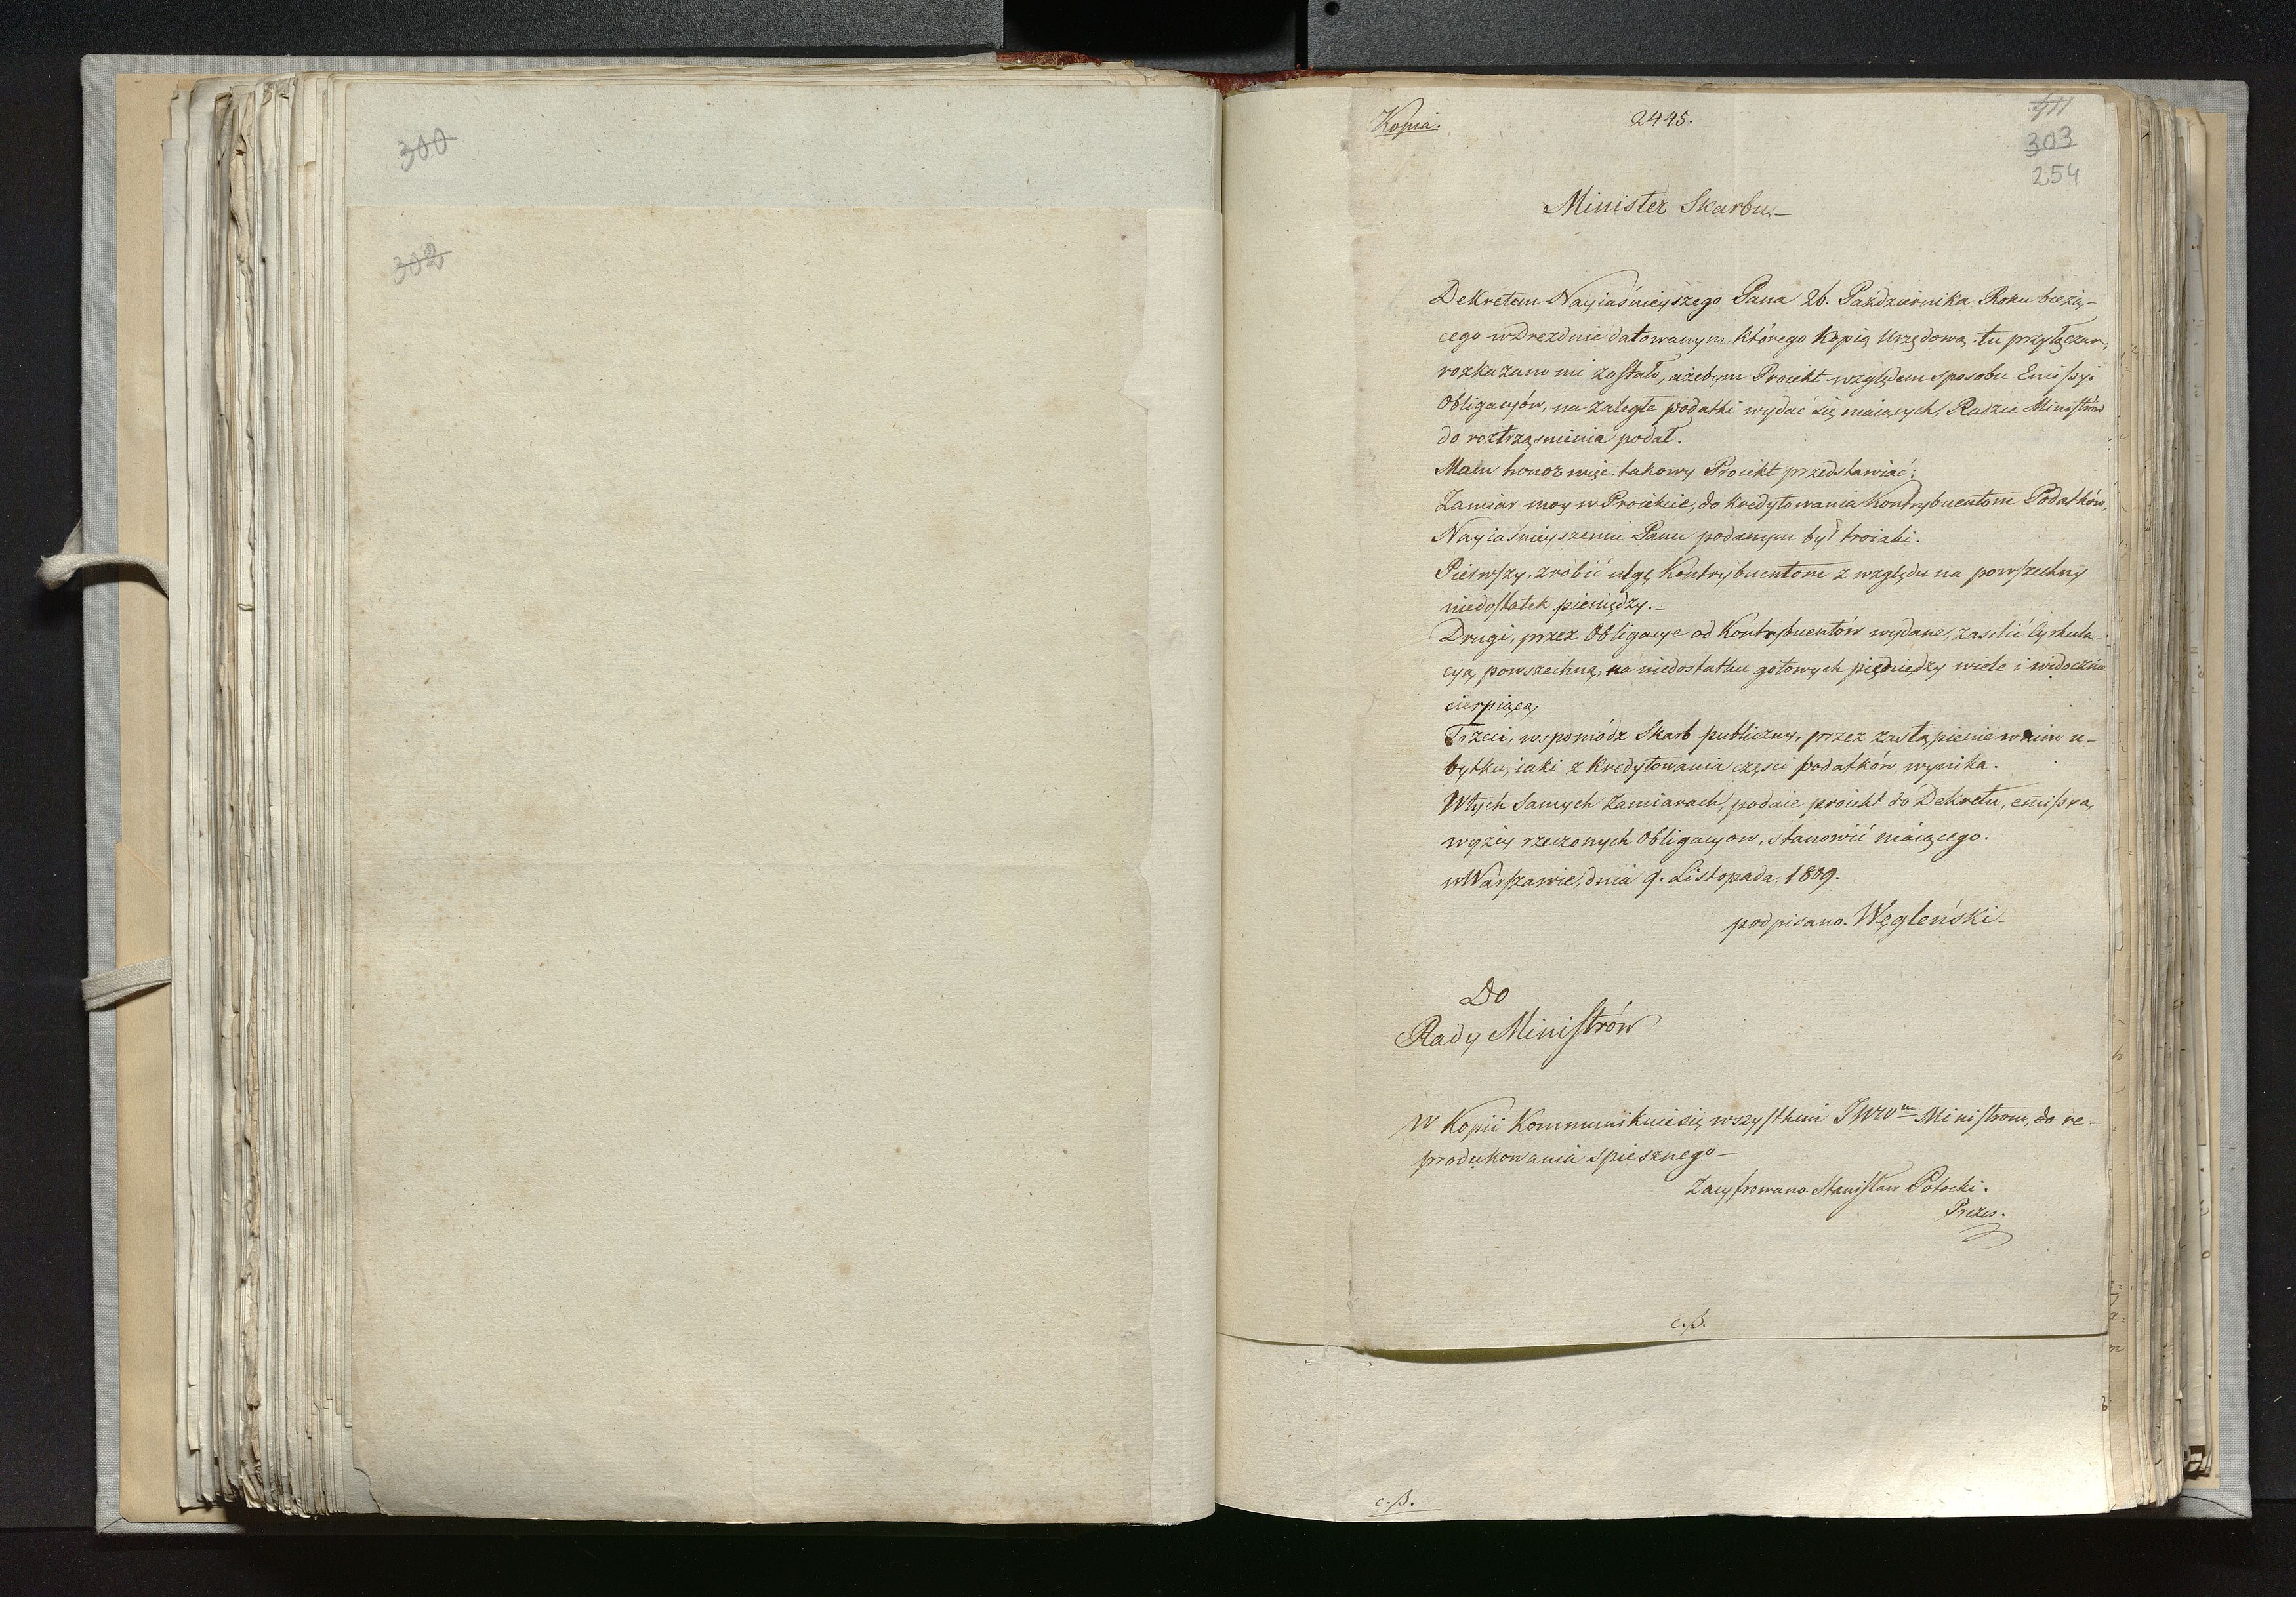 300
302
Kopia.
2445.
411
303
254
Minister Skarbu.–
Dekretem Nayiaśnieyszego Pana 26. Października Roku bieżą-
cego w Dreźnie datowanym, którego Kopią Urzędową tu przyłączam,
rozkazano mi zostało, ażebym Proiekt względem sposobu Emissyi
Obligacyów, na zaległe podatki wydać się maiących, Radzie Ministrów
do roztrząśnienia podał.
Mam honor więc, takowy Proiekt przedstawiać;
Zamiar moy w Proiekcie, do kredytowania Kontrybuentom Podatków,
Nayiaśnieyszemu Panu podanym był troiaki.
Pierwszy, zrobić ulgę Kontrybuentom z względu na powszechny
niedostatek pieniędzy.–
Drugi, przez Obligacye od Kontrybuentów wydane, zasilić Cyrkula-
cyą powszechną, na niedostatku gotowych pieniędzy wiele i widocznie
cierpiącą,
Trzeci, wspomódz Skarb publiczny, przez zastąpienie w nim u-
bytku, iaki z kredytowania części podatków wynika.
W tych samych zamiarach, podaie proiekt do Dekretu, emissyą,
wyżey rzeczonych Obligacyow, stanowić maiącego.
w Warszawie, dnia 9. Listopada. 1809.
podpisano. Węgleński.
Do
Rady Ministrów
W Kopii Kommunikuie się wszystkim JWW<sup>m</sup> Ministrom, do re-
produkowania spiesznego–
Zacyfrowano Stanisław Potocki.
Prezes.
c.ß.
c.ß.